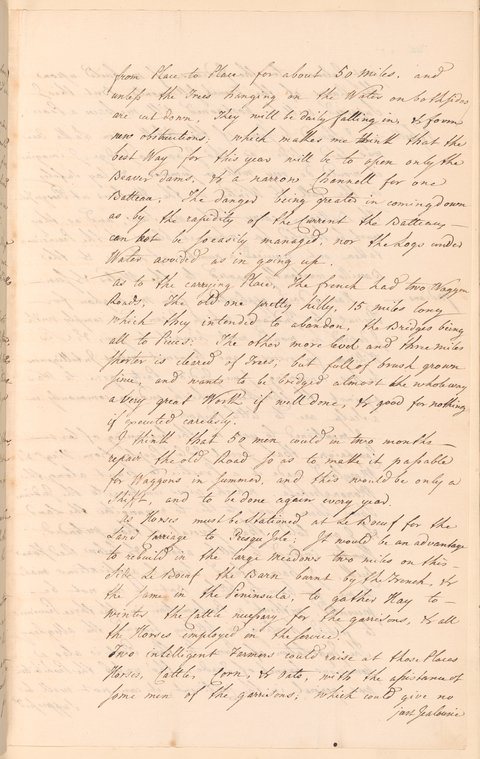 from Place to Place for about 50 Miles. and
unless the Trees hanging in the Water on both sides
are cut down. They will be daily falling in, & form
new obstructions. which makes me think that the
best Way for this year will be to open only the
Beaver dams, & a narrow Channell for one
Batteau. The danger being greater in coming down
as by the rapidity of the Current the Batteaux
can not be so easily managed, nor the Logs under
Water avoided as in going up.
As to the carrying Place, The french had two Waggon
Roads, The old one pretty hilly, 15 miles long
which they intended to abandon, the Bridges being
all to Pieces: The other more level and three miles
shorter is cleared of Trees, but full of brush grown
since, and wants to be bridged almost the whole way
a very great Work if well done, & good for nothing
if executed carelessly.
I think that 50 men could in two months
repair the old Road so as to make it passable
for Waggons in Summer. and this would be only a
Shift, and to be done again every year
As Horses must be Stationed at Le Boeuf for the
Land Carriage to Presqu'Isle: It would be an advantage
to rebuild in the large meadows two miles on this
Side Le Boeuf the Barn burnt by the French, &
the same in the Peninsula; to gather Hay to
winter the Cattle necessary for the garrisons, & all
the Horses employed in the Service.
Two intelligent Farmers could raise at those Places
Horses, Cattle, Corn, & Oats, with the assistance of
some men of the garrisons, which could give no
just Jealousie